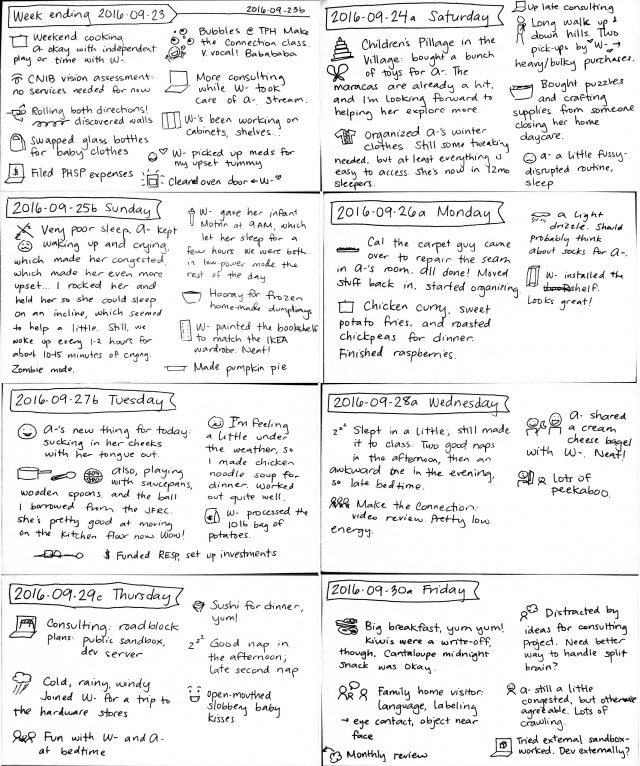 Week ending 2016-09-23
2016-09-23b
Weekend cooking
A- okay with independent
play or time with W-.
CNIB vision assessment:
no services needed for now
Rolling both directions!
discovered walls
Swapped glass bottles
for baby clothes
Filed PHSP expenses
Bubbles @ TPH Make
the Connection class.
V. vocal! Babababa
More consulting
while W- took
care of A-. Stream.
W-'s been working on
cabinets, shelves..!
W- picked up meds for
my upset tummy
Cleaned oven door ← W- ♡
2016-09-24a Saturday
Children's Pillage in the
Village: bought a bunch
of toys for A-. The
maracas are already a hit,
and I'm looking forward to
helping her explore more.
Organized A-'s winter
clothes. Still some tweaking
needed, but at least everything is
easy to access. She's now in 12mo
sleepers.
Up late consulting
Long walk up &
down hills. Two
pick-ups by W- →
heavy/bulky purchases.
Bought puzzles
and crafting
supplies from someone
closing her home
daycare.
A- a little fussy-
disrupted routine,
sleep
2016-09-25b Sunday
Very poor sleep. A- kept
waking up and crying,
which made her congested,
which made her even more
upset... I rocked her and
held her so she could sleep
on an incline, which seemed
to help a little. Still, we
woke up every 1-2 hours for
about 10-15 minutes of crying.
Zombie mode.
W- gave her infant
Motrin at 9AM, which
let her sleep for a
few hours. We were both
in low-power mode the
rest of the day
Hooray for frozen
home-made dumplings
W- painted the bookshelf
to match the IKEA
wardrobe. Neat!
Made pumpkin pie
2016-09-26a Monday
Cal the carpet guy came
over to repair the seam
in A-'s room. All done! Moved
stuff back in, started organizing
Chicken curry, sweet
potato fries, and roasted
chickpeas for dinner.
Finished raspberries.
A light
drizzle. Should
probably think
about socks for A-.
W- installed the
shelf.
Looks great!
2016-09-27b Tuesday
A-'s new thing for today:
sucking in her cheeks
with her tongue out.
Also, playing
with saucepans,
wooden spoons, and the ball
I borrowed from the JFRC.
She's pretty good at moving
on the kitchen floor now. Wow!
$ Funded RESP, set up investments
I'm feeling
a little under
the weather, so
I made chicken
noodle soup for
dinner. Worked
out quite well.
W- processed the
10lb bag of
potatoes.
2016-09-28a Wednesday
zzz Slept in a little; still made
it to class. Two good naps
in the afternoon, then an
awkward one in the evening,
so late bedtime.
Make the Connection:
video review. Pretty low
energy.
A- shared
a cream
cheese bagel
with W-. Neat!
Lots of
peekaboo.
2016-09-29c Thursday
Consulting: roadblock
plans: public sandbox,
dev server
Cold, rainy, windy
Joined W- for a trip to
the hardware stores
Fun with W- and A-
at bedtime
Sushi for dinner,
yum!
zzz Good nap in
the afternoon;
late second nap
Open-mouthed
slobbery baby
kisses
2016-09-30a Friday
Big breakfast, yum yum!
Kiwis were a write-off,
though. Cantaloupe midnight
snack was okay.
Family home visitor:
language, labeling
→ eye contact, object near
face
Monthly review
Distracted by
ideas for consulting
project. Need better
way to handle split
brain?
A- still a little
congested, but otherwise
agreeable. Lots of
crawling.
Tried external sandbox-
worked. Dev externally?